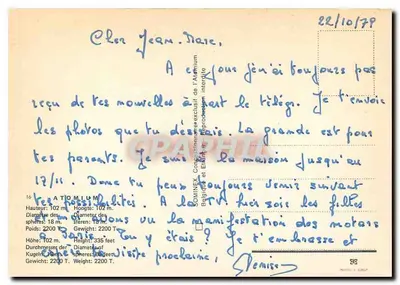 22/10/79
Cher Jean-Marc,
A ce jour je n'ai toujours pas
reçu de tes nouvelles à part le télég. Je t'envoie
les photos que tu désirais. La grande est pour
tes parents. Je suis à la maison jusqu'au
17/11. Donc tu peux toujours venir suivant
tes possibilités. A la TV hier soir les filles
et moi nous vu la manifestation des motars
à Paris. Tou y étais? Je t'embrasse et
espère ta visite prochaine,
Denise
L'ATOMIUM
Hauteur: 102 m. Hoogte: 102 m.
Diamètre des Diameter des
sphères: 18 m. sferen: 18 m.
Poids: 2200 T. Gewicht: 2200 T.
Höhe: 102 m. Height: 335 feet
Durchmesser der Diameter of
Gewicht: 2200 T. Weight: 2200 T.